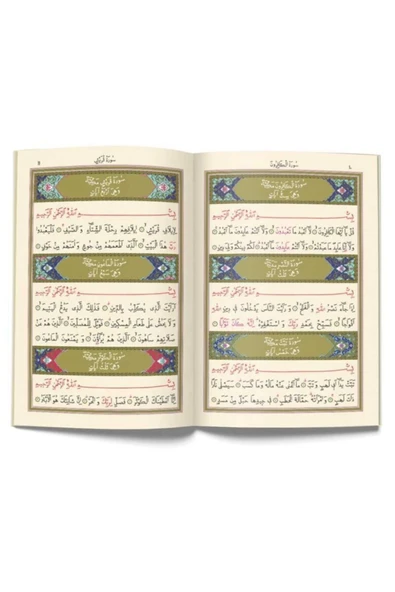 سُورَةُ الْكَافِرُونَ
سُورَةُ الْكَافِرُونَ مَكِّيَّةٌ
وَهِيَ سِتُّ اٰيَاتٍ
بِسْمِ اللّٰهِ الرَّحْمٰنِ الرَّحِيمِ
قُلْ يَٓا اَيُّهَا الْكَافِرُونَ لَٓا اَعْبُدُ مَا تَعْبُدُونَ وَلَٓا اَنْتُمْ عَابِدُونَ مَٓا اَعْبُدُ
وَلَٓا اَنَا عَابِدٌ مَا عَبَدْتُمْ وَلَٓا اَنْتُمْ عَابِدُونَ مَٓا اَعْبُدُ لَكُمْ دِينُكُمْ وَلِيَ دِينِ
سُورَةُ النَّصْرِ
وَهِيَ ثَلَاثُ اٰيَاتٍ
بِسْمِ اللّٰهِ الرَّحْمٰنِ الرَّحِيمِ
اِذَا جَٓاءَ نَصْرُ اللّٰهِ وَالْفَتْحُ وَرَاَيْتَ النَّاسَ يَدْخُلُونَ فِي دِينِ اللّٰهِ
اَفْوَاجًا فَسَبِّحْ بِحَمْدِ رَبِّكَ وَاسْتَغْفِرْهُ اِنَّهُ كَانَ تَوَّابًا
سُورَةُ تَبَّتْ مَكِّيَّةٌ
وَهِيَ خَمْسُ اٰيَاتٍ
بِسْمِ اللّٰهِ الرَّحْمٰنِ الرَّحِيمِ
تَبَّتْ يَدَٓا اَبِي لَهَبٍ وَتَبَّ مَٓا اَغْنٰى عَنْهُ مَالُهُ وَمَا كَسَبَ سَيَصْلٰى نَارًا
ذَاتَ لَهَبٍ وَامْرَاَتُهُ حَمَّالَةَ الْحَطَبِ فِي جِيدِهَا حَبْلٌ مِنْ مَسَدٍ
سُورَةُ قُرَيْشٍ
سُورَةُ قُرَيْشٍ مَكِّيَّةٌ
وَهِيَ اَرْبَعُ اٰيَاتٍ
بِسْمِ اللّٰهِ الرَّحْمٰنِ الرَّحِيمِ
لِا۪يلَافِ قُرَيْشٍ اِيلَافِهِمْ رِحْلَةَ الشِّتَٓاءِ وَالصَّيْفِ فَلْيَعْبُدُوا
رَبَّ هٰذَا الْبَيْتِ اَلَّذِي اَطْعَمَهُمْ مِنْ جُوعٍ وَاٰمَنَهُمْ مِنْ خَوْفٍ
سُورَةُ الْمَاعُونِ مَكِّيَّةٌ
وَهِيَ سَبْعُ اٰيَاتٍ
بِسْمِ اللّٰهِ الرَّحْمٰنِ الرَّحِيمِ
اَرَاَيْتَ الَّذِي يُكَذِّبُ بِالدِّينِ فَذٰلِكَ الَّذِي يَدُعُّ الْيَتِيمَ
وَلَا يَحُضُّ عَلٰى طَعَامِ الْمِسْكِينِ فَوَيْلٌ لِلْمُصَلِّينَ اَلَّذِينَ هُمْ عَنْ
صَلَاتِهِمْ سَاهُونَ اَلَّذِينَ هُمْ يُرَٓاؤُنَ وَيَمْنَعُونَ الْمَاعُونَ
سُورَةُ الْكَوْثَرِ مَكِّيَّةٌ
وَهِيَ ثَلَاثُ اٰيَاتٍ
بِسْمِ اللّٰهِ الرَّحْمٰنِ الرَّحِيمِ
اِنَّٓا اَعْطَيْنَاكَ الْكَوْثَرَ فَصَلِّ لِرَبِّكَ وَانْحَرْ اِنَّ شَانِئَكَ هُوَ الْاَبْتَرُ